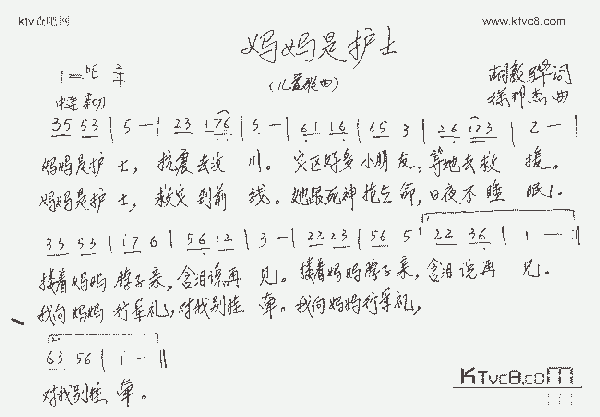 ktv酷吧网
www.ktvc8.com
妈妈是护士
(儿童歌曲)
1=ᵇE 2/4
词
徐邦杰曲
中速 亲切
35 53 | 5 — | 23 176 | 5 — | 61 16 | 15 3 | 26 173 | 2 — |
妈妈是护士,抗震去汶川。灾区好多小朋友,等她去救援。
妈妈是护士,救灾到前线。她跟死神抢生命,日夜不睡眠。
33 53 | 17 6 | 56 12 | 3 — | 22 23 | 56 5 | 22 36 | 1 — :||
搂着妈妈脖子亲,含泪说再见。搂着妈妈脖子亲,含泪说再见。
我向妈妈行军礼,对我别挂牵。我向妈妈行军礼,
63 56 | 1 — ||
对我别挂牵。
KTvc8.com